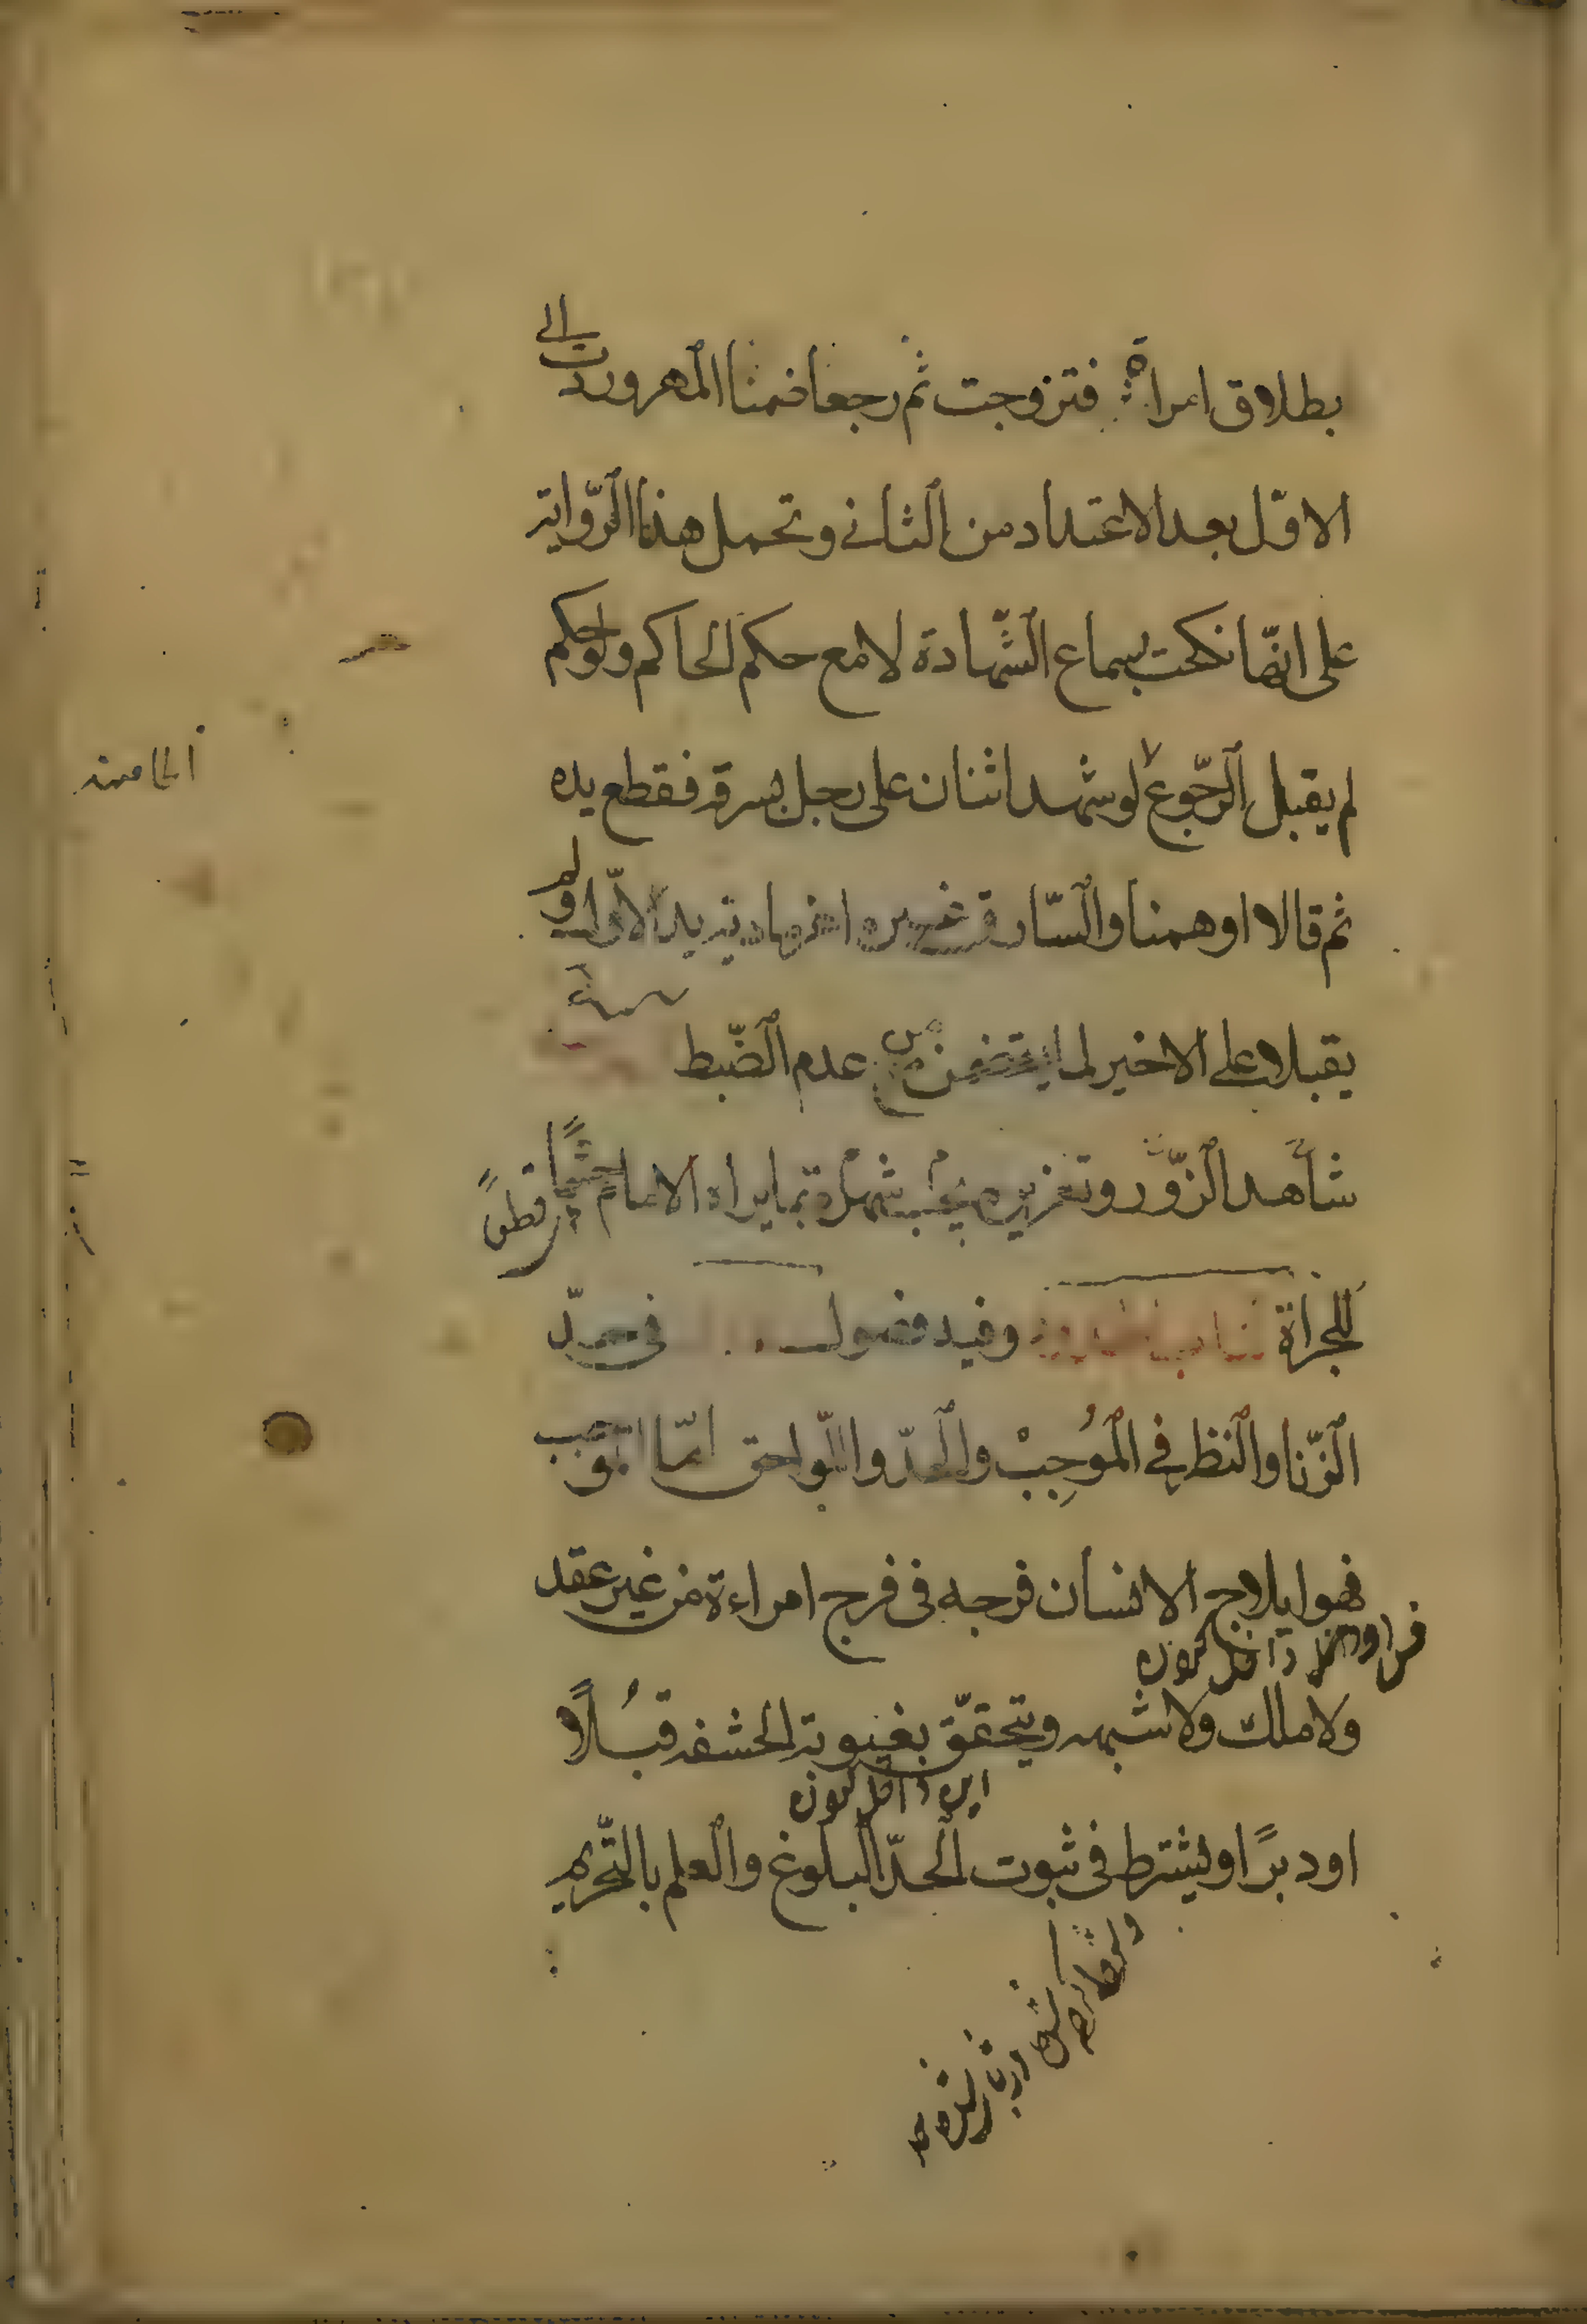 بطلاق امراة فتزوجت ثم رجعا ضمنا المهر وردت الى
الاوّل بعد الاعتداد من الثانى وتحمل هذه الرّواية
على انّها نكحت بسماع الشّهادة لا مع حكم الحاكم ولو حكم
لم يقبل الرّجوع لو شهد اثنان على رجل بسرقة فقطع يده
الخامسة
ثم قالا اوهمنا والسّارق غيره اغرما دية يد الاوّل ولم
يقبلا على الاخير لما يتضمن من عدم الضّبط
شاهد الزّور وتعزيره بما يراه الامام حسما
للجراة وفيه فصول فى حدّ
الزّنا والنظر فى المُوجِبْ والحدّ واللّواحق امّا الموجب
فهو ايلاج الانسان فرجه فى فرج امراءة من غير عقد
داخل كردن
ولا ملك ولا شبهه ويتحقّق بغيبوبة الحشفه قبُلاً
داخل كردن
او دبرًا ويشترط فى ثبوت الحدّ البلوغ والعلم بالتّحريم